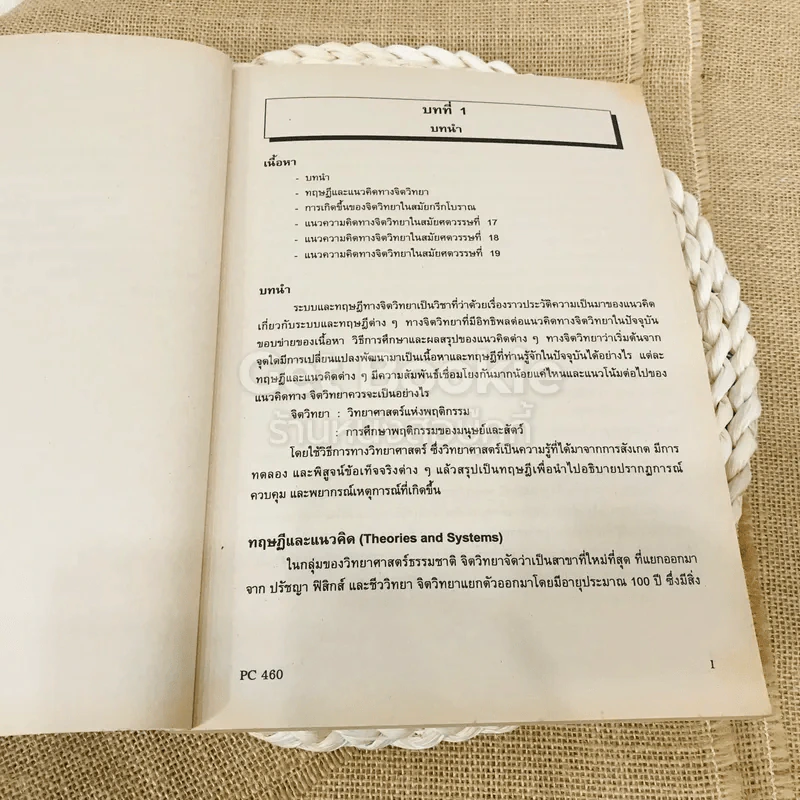 บทที่ 1
บทนำ
เนื้อหา
- บทนำ
- ทฤษฎีและแนวคิดทางจิตวิทยา
- การเกิดขึ้นของจิตวิทยาในสมัยกรีกโบราณ
- แนวความคิดทางจิตวิทยาในสมัยศตวรรษที่ 17
- แนวความคิดทางจิตวิทยาในสมัยศตวรรษที่ 18
- แนวความคิดทางจิตวิทยาในสมัยศตวรรษที่ 19
บทนำ
ระบบและทฤษฎีทางจิตวิทยาเป็นวิชาที่ว่าด้วยเรื่องราวประวัติความเป็นมาของแนวคิด
เกี่ยวกับระบบและทฤษฎีต่าง ๆ ทางจิตวิทยาที่มีอิทธิพลต่อแนวคิดทางจิตวิทยาในปัจจุบัน
ขอบข่ายของเนื้อหา วิธีการศึกษาและผลสรุปของแนวคิดต่าง ๆ ทางจิตวิทยาว่าเริ่มต้นจาก
จุดใดมีการเปลี่ยนแปลงพัฒนามาเป็นเนื้อหาและทฤษฎีที่ท่านรู้จักในปัจจุบันได้อย่างไร แต่ละ
ทฤษฎีและแนวคิดต่าง ๆ มีความสัมพันธ์เชื่อมโยงกันมากน้อยแค่ไหนและแนวโน้มต่อไปของ
แนวคิดทาง จิตวิทยาควรจะเป็นอย่างไร
จิตวิทยา : วิทยาศาสตร์แห่งพฤติกรรม
: การศึกษาพฤติกรรมของมนุษย์และสัตว์
โดยใช้วิธีการทางวิทยาศาสตร์ ซึ่งวิทยาศาสตร์เป็นความรู้ที่ได้มาจากการสังเกต มีการ
ทดลอง และพิสูจน์ข้อเท็จจริงต่าง ๆ แล้วสรุปเป็นทฤษฎีเพื่อนำไปอธิบายปรากฏการณ์
ควบคุม และพยากรณ์เหตุการณ์ที่เกิดขึ้น
ทฤษฎีและแนวคิด (Theories and Systems)
ในกลุ่มของวิทยาศาสตร์ธรรมชาติ จิตวิทยาจัดว่าเป็นสาขาที่ใหม่ที่สุด ที่แยกออกมา
จาก ปรัชญา ฟิสิกส์ และชีววิทยา จิตวิทยาแยกตัวออกมาโดยมีอายุประมาณ 100 ปี ซึ่งมีสิ่ง
PC 460
1